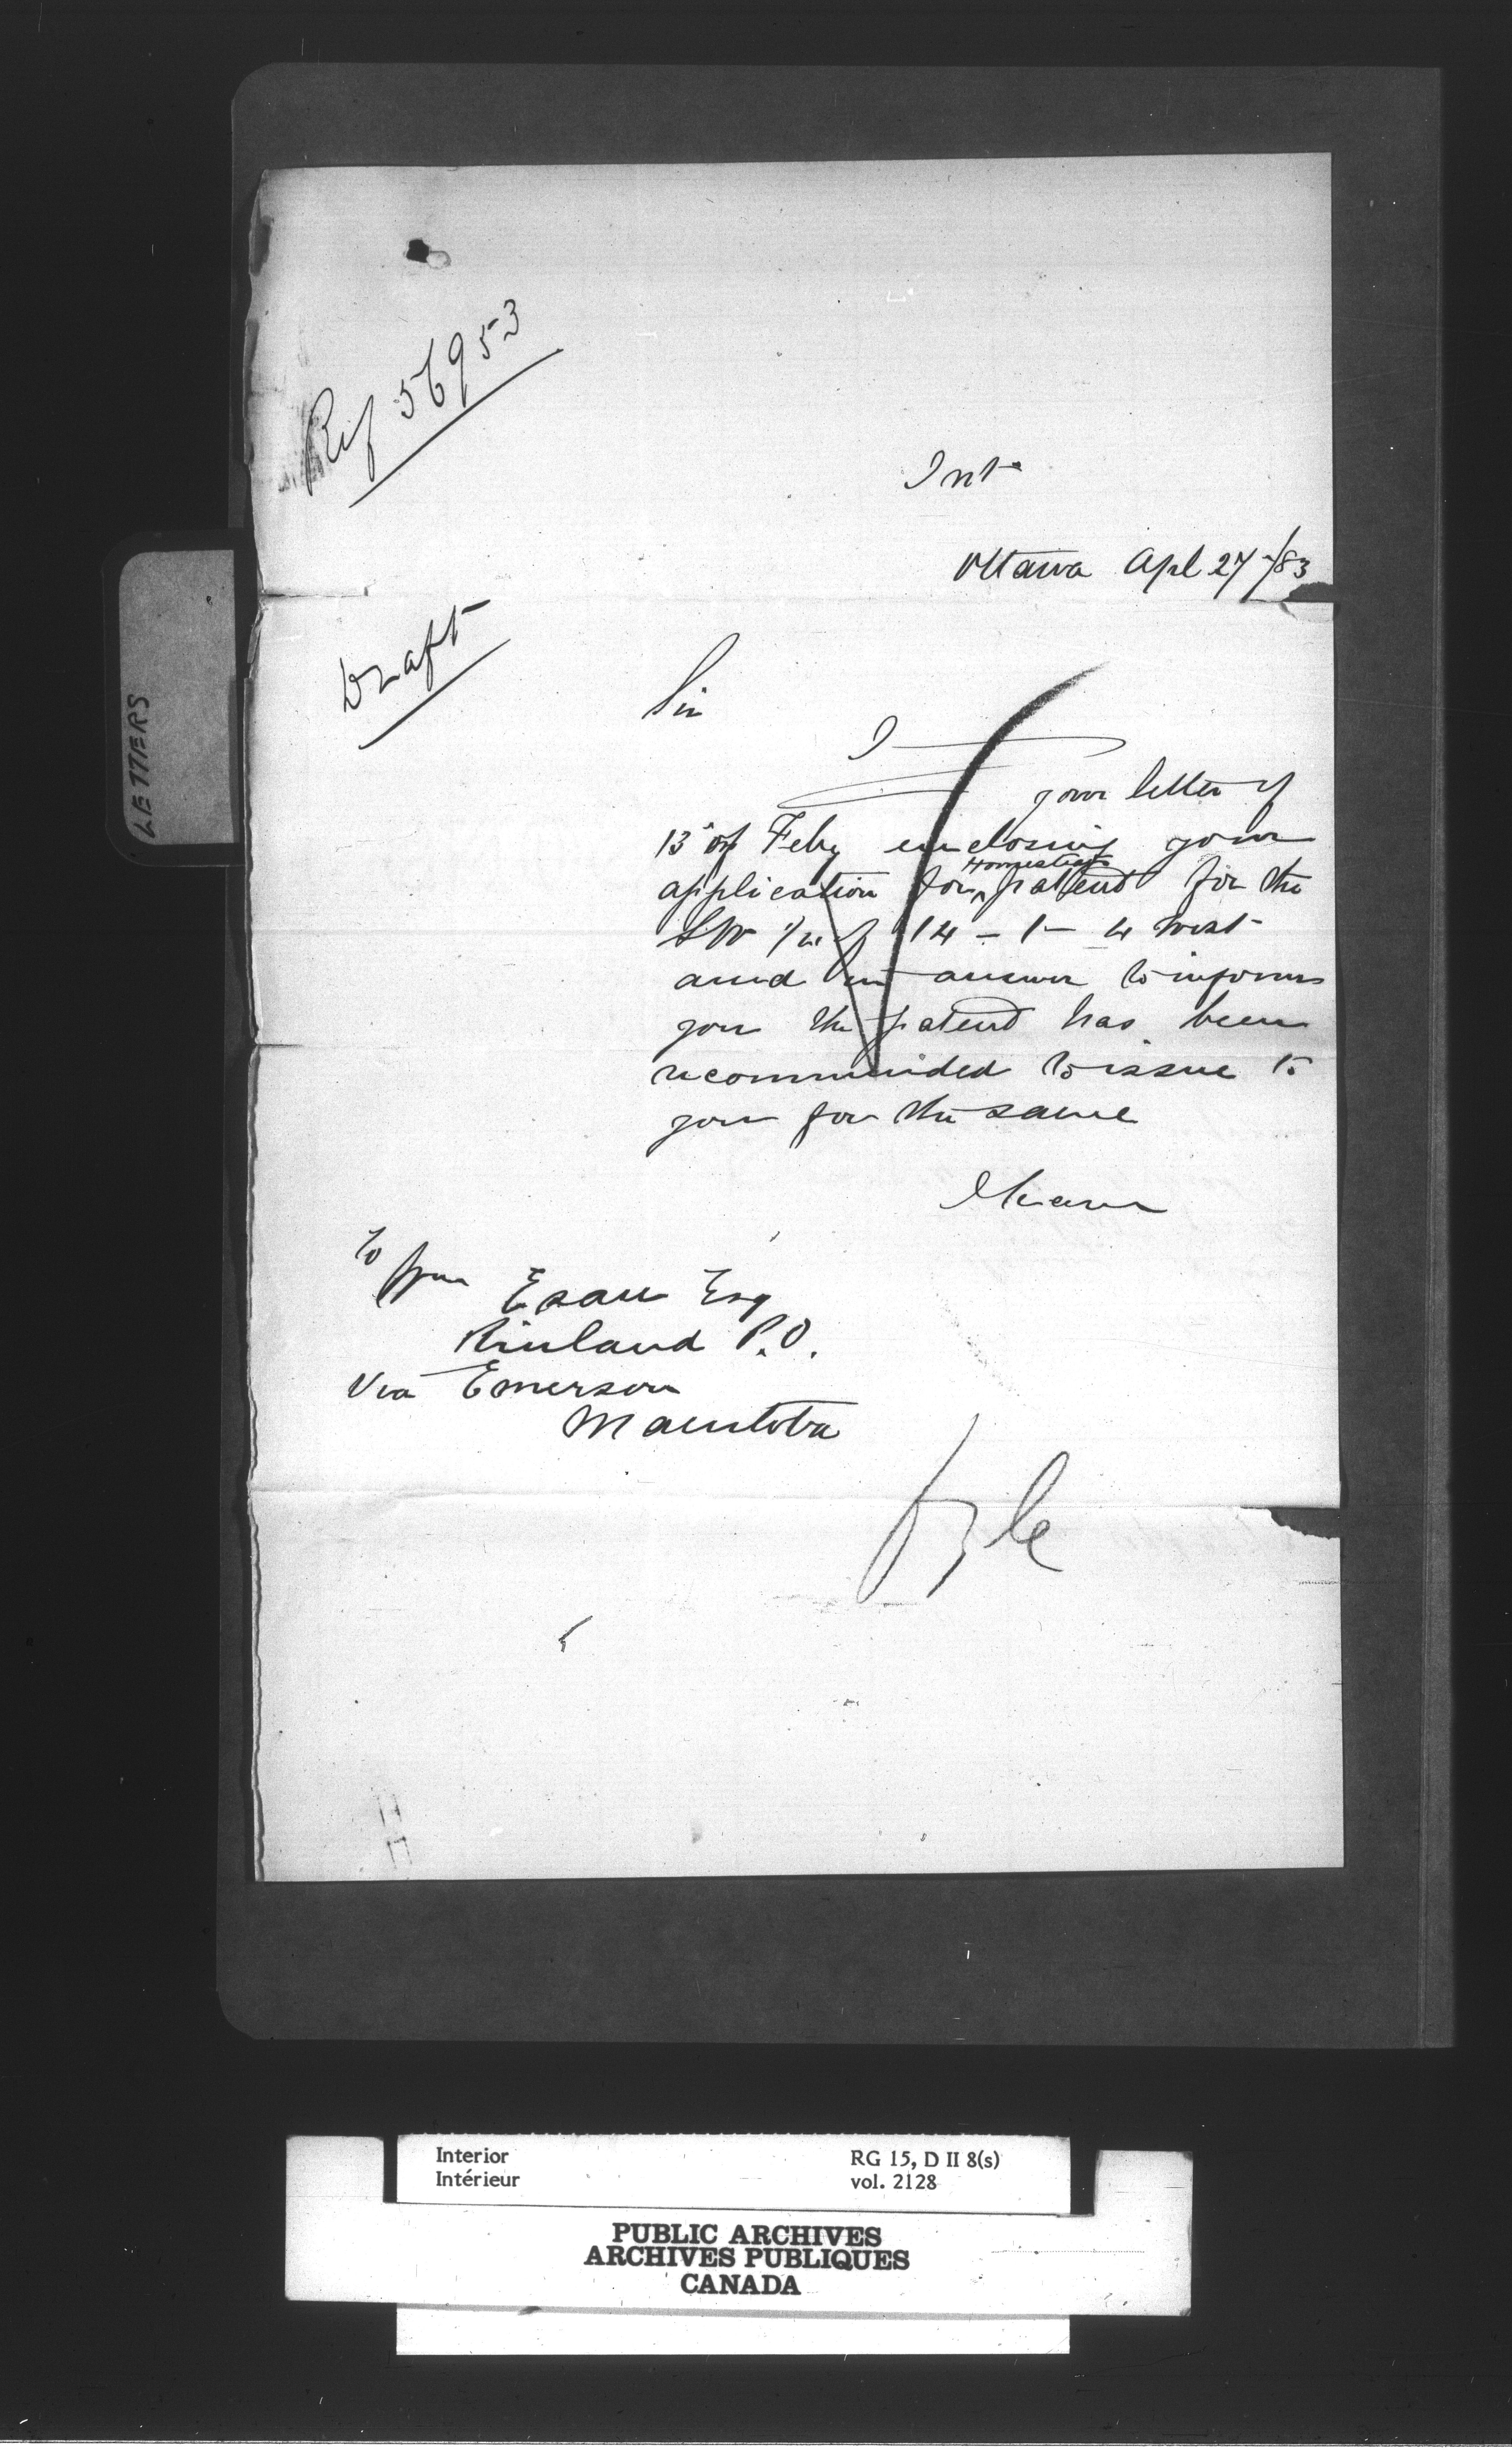 Ref 56953
Int
Ottawa Apl 27/83
Draft
LETTERS
Sir
I
your letter of
13 of Feby enclosing your
application for Homestead patent for the
SW 1/4 of 14 - 1 - 4 West
and in answer to inform
you the patent has been
recommended to issue to
you for the same
To
Esau Esq
Rinland P.O.
Via Emerson
Manitoba
fyle
Interior
Intérieur
RG 15, D II 8(s)
vol. 2128
PUBLIC ARCHIVES
ARCHIVES PUBLIQUES
CANADA